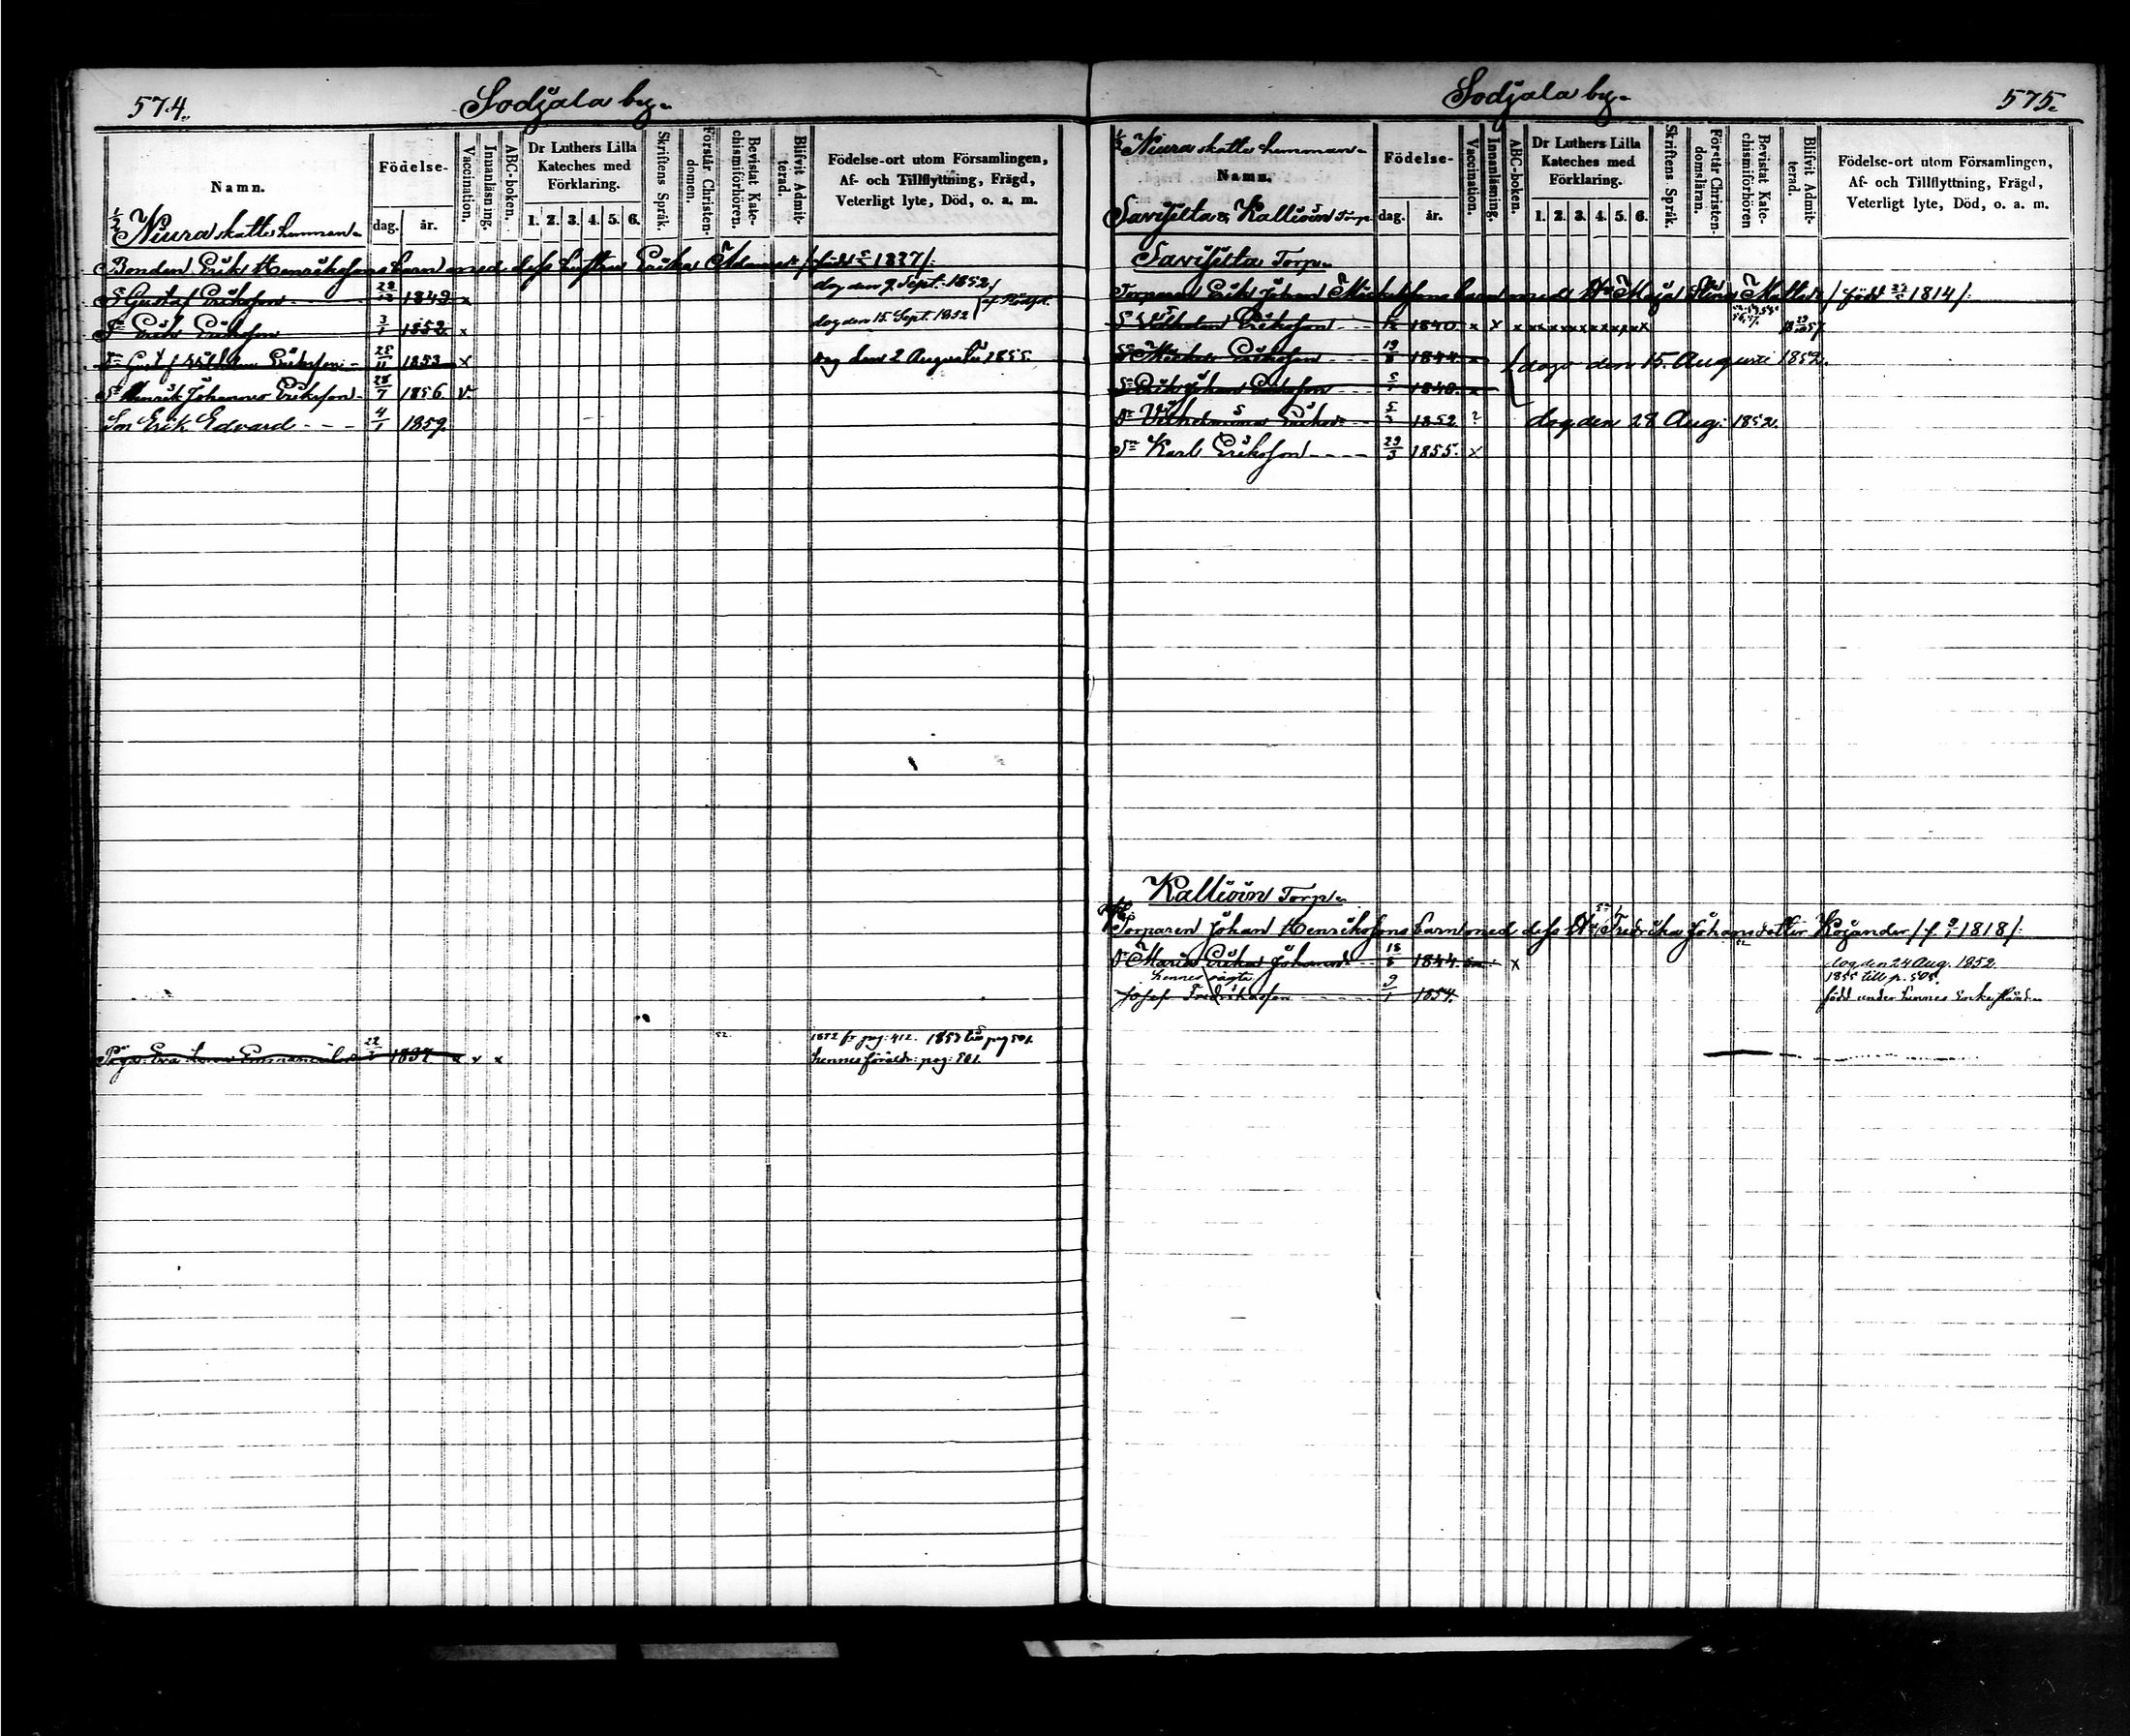 574.
Sodjala by.
Namn.
Födelse-
dag.
år.
Vaccination.
Innanläsning.
ABC-boken.
Dr Luthers Lilla Kateches med Förklaring.
1. 2. 3. 4. 5. 6.
Skriftens Språk.
Förstår Christen-domen.
Bevistat Kate-chismiförhören.
Blifvit Admit-terad.
Födelse-ort utom Församlingen,
Af- och Tillflyttning, Frägd,
Veterligt lyte, Död, o. a. m.
1/2 Niura skatte hemman
Bonden Erik Henriksons barn med dess hustru Erika Adamsdr / född 1827/:
Sn Gustaf Erikson 1849 x dog den 9. Sept. 1852
Sn Erik Erikson 3/1 1852 x dog den 15. Sept. 1852 af Rödsot
Sn Gust f Wilhelm Erikson 25/11 1853 x dog den 2 Augusti 1855
Sn Henrik Johannes Erikson 28/7 1856 v
Son Erik Edvard 4/1 1859.
52. 1852 fr pag: 412. 1853 till pag 501.
Pig. Eva Emanuelsdr 22/3 1837 x x x hennes föräldr: pag: 501.
Sodjala by.
575.
1/2 Niura skatte hemman
Namn.
Savisilta & Kallioin Torp
Födelse-
dag.
år.
Vaccination.
Innanläsning.
ABC-boken.
Dr Luthers Lilla Kateches med Förklaring.
1. 2. 3. 4. 5. 6.
Skriftens Språk.
Förstår Christen-domsläran.
Bevistat Kate-chismiförhören
Blifvit Admit-terad.
Födelse-ort utom Församlingen,
Af- och Tillflyttning, Frägd,
Veterligt lyte, Död, o. a. m.
Savisilta Torp.
Torparen Erik Johan Mickelsons barn med Hu Maja Stina Mattsdr / född 1814/:
Sn Vilhelm Erikson 1840 x x x x x x x x x x
Sn Mickel Erikson 19/8 1844 x dogo den 15. Augusti 1852.
Sn Erik Johan Erikson 1848. x
Dr Vilhelmina Eriksdr 5/3 1852 ? dog den 28 Aug: 1852.
Sn Karl Erikson 29/3 1855. x
Kallioin Torp.
Torparen Johan Henriksons barn med dess Hu Fredrika Johansdotter Kojander / f. 1818/:
Dr Maria Erika Johansdr 18/8 1844. x dog den 24 Aug. 1852.
hennes oägta 1855 till p. 505.
Josef Fredrikason 9/1 1854. född under hennes Enkestånd